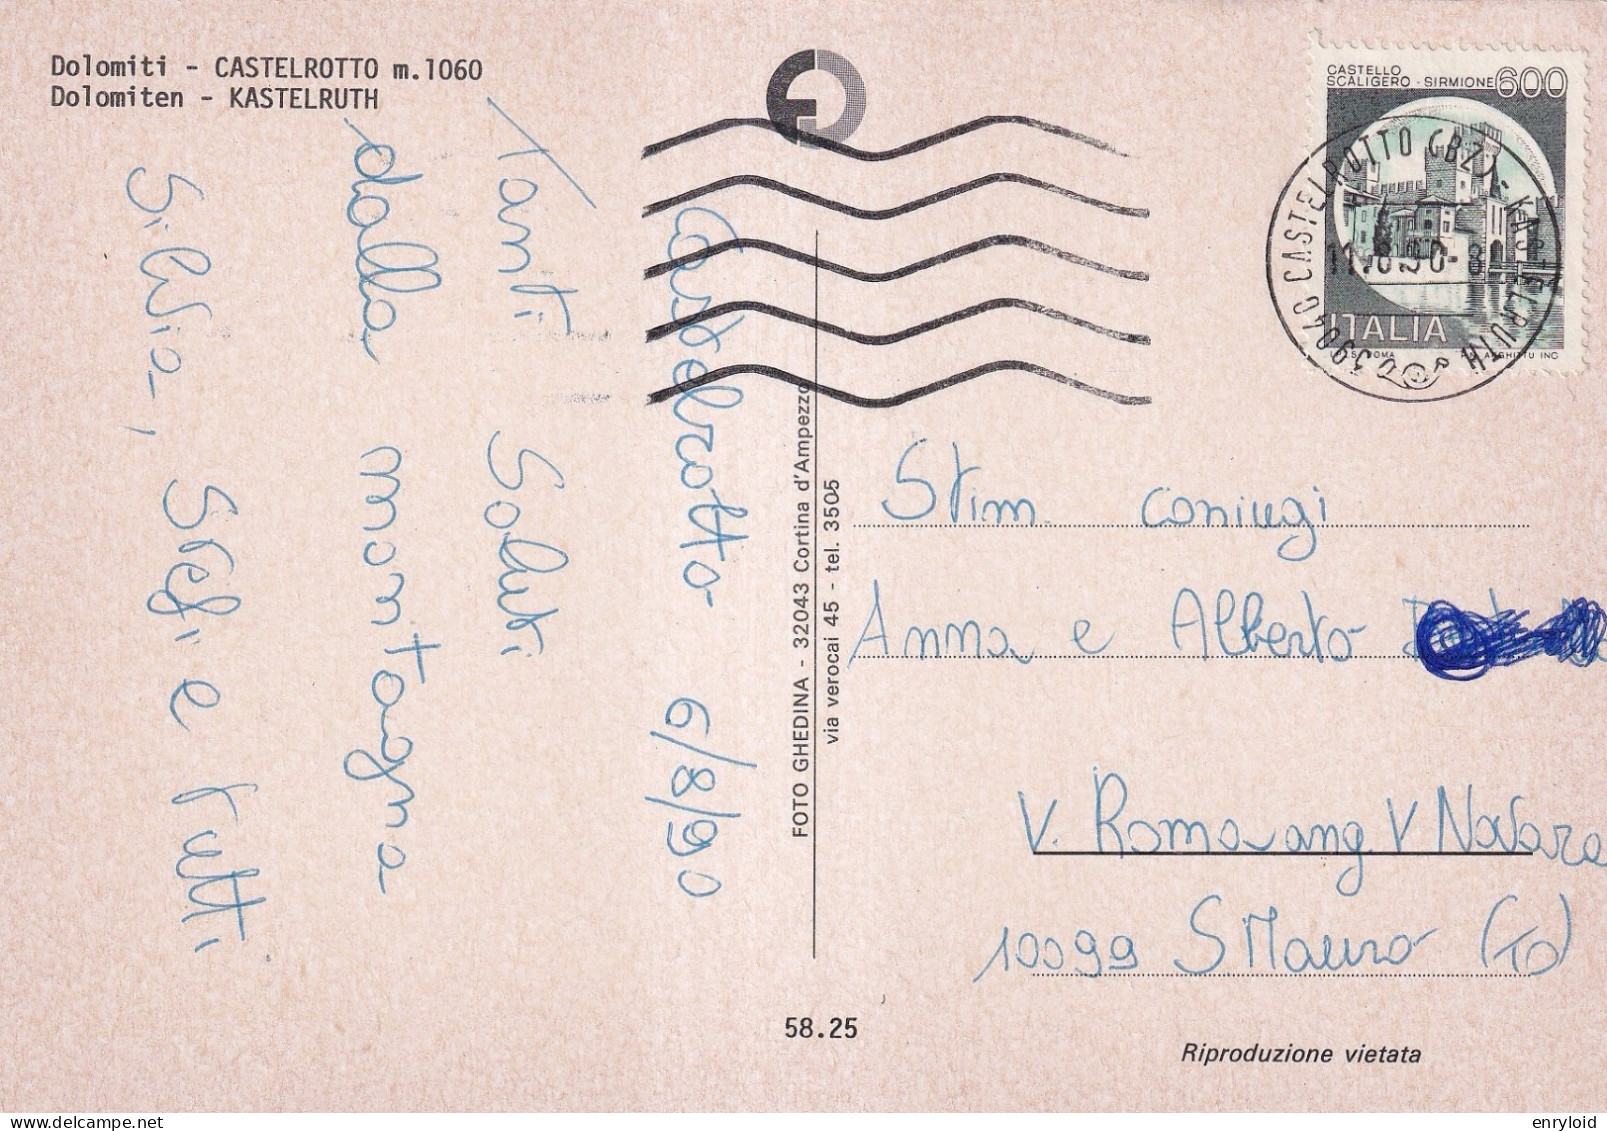 Dolomiti - CASTELROTTO m.1060
Dolomiten - KASTELRUTH
Castelrotto 6/8/90
Tanti Saluti
dalla montagna
Silvia, Stefi e tutti
FOTO GHEDINA - 32043 Cortina d'Ampezzo
via verocai 45 - tel. 3505
CASTELLO
SCALIGERO - SIRMIONE 600
ITALIA
39040 CASTELROTTO (BZ) - KASTELRUTH
Stim. coniugi
Anna e Alberto
V. Roma ang. V Novara
10099 S Mauro (TO)
58.25
Riproduzione vietata
enryloid